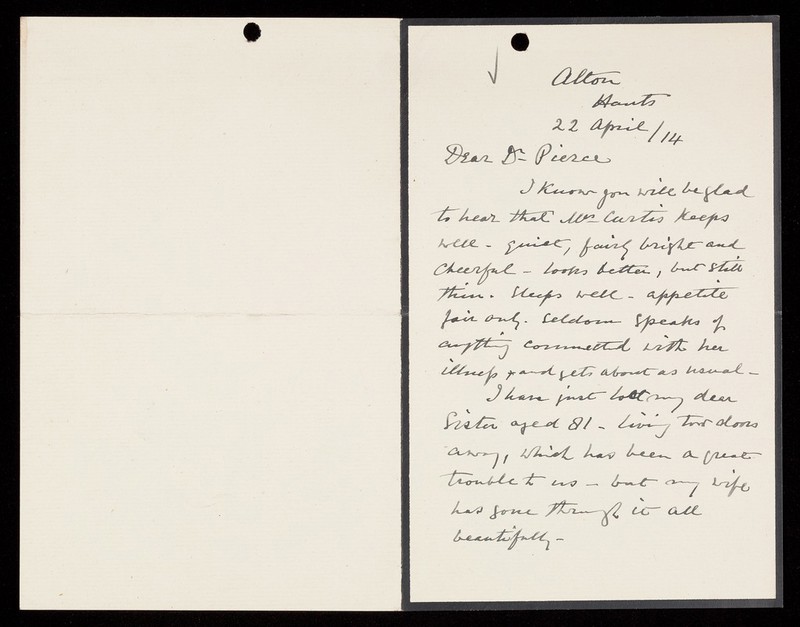 Alton
Hants
22 April/14
Dear Dr Pierce
I know you will be glad
to hear that Mrs Curtis keeps
well - quiet, fairly bright and
cheerful - looks better, but still
thin. Sleeps well - appetite
fair only. Seldom speaks of
anything connected with her
illness & and gets about as usual -
I have just lost my dear
Sister aged 81 - living two doors
away, which has been a great
trouble to us - but my wife
has gone through it all
beautifully -